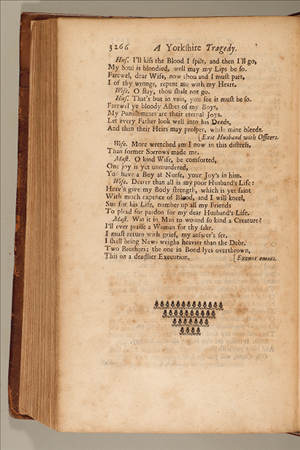 3266 A Yorkshire Tragedy.
Hus. I'll kiss the Blood I spilt, and then I'll go,
My Soul is bloodied, well may my Lips be so.
Farewel, dear Wife, now thou and I must part,
I of thy wrongs, repent me with my Heart.
Wife. O stay, thou shalt not go.
Hus. That's but in vain, you see it must be so.
Farewel ye bloody Ashes of my Boys,
My Punishments are their eternal Joys.
Let every Father look well into his Deeds,
And then their Heirs may prosper, while mine bleeds.
[Exit Husband with Officers.
Wife. More wretched am I now in this distress,
Than former Sorrows made me.
Mast. O kind Wife, be comforted,
One joy is yet unmurdered,
You have a Boy at Nurse, your Joy's in him.
Wife. Dearer than all is my poor Husband's Life:
Heav'n give my Body strength, which is yet faint
With much expence of Blood, and I will kneel,
Sue for his Life, number up all my Friends
To plead for pardon for my dear Husband's Life.
Mast. Was it in Man to wound so kind a Creature?
I'll ever praise a Woman for thy sake.
I must return with grief, my answer's set,
I shall bring News weighs heavier than the Debt.
Two Brothers; the one in Bond lyes overthrown,
This on a deadlier Execution. [Exeunt omnes.